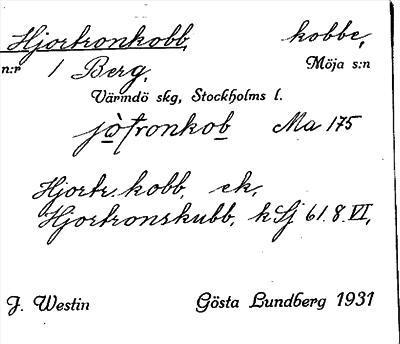 Hjortronkobb, kobbe,
n:r 1 Berg, Möja s:n
Värmdö skg, Stockholms l.
jo̱`tronko̱b Ma 175
Hjortr. kobb, ek,
Hjortronskubb, kSj 61.8.VI,
J. Westin Gösta Lundberg 1931